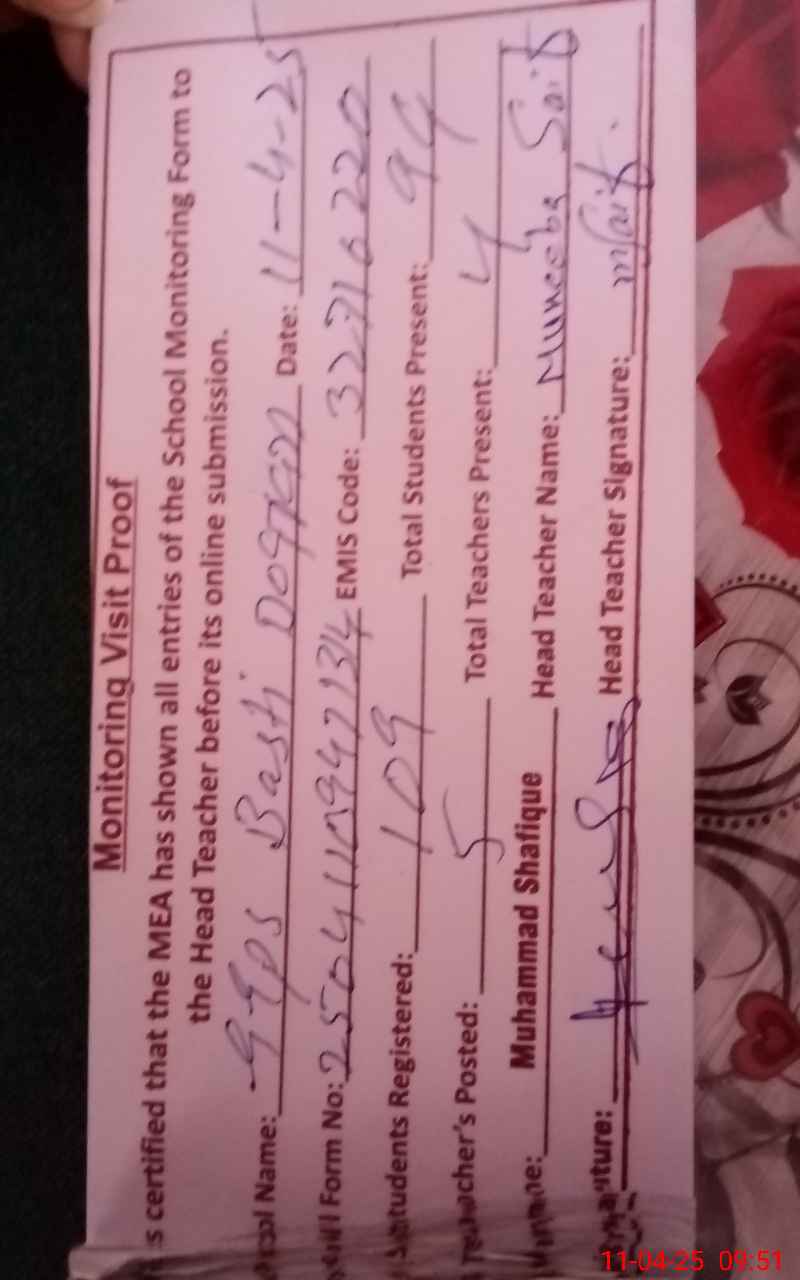 Monitoring Visit Proof
is certified that the MEA has shown all entries of the School Monitoring Form to
the Head Teacher before its online submission.
Name: GGPS Basti Date: 11-4-25
Form No: 250411103947134 EMIS Code: 32710220
Students Registered: 109 Total Students Present: 94
Teacher's Posted: 5 Total Teachers Present: 4
Muhammad Shafique Head Teacher Name: Muneeba Saif
Head Teacher Signature: MSaif.
11-04-25 09:51